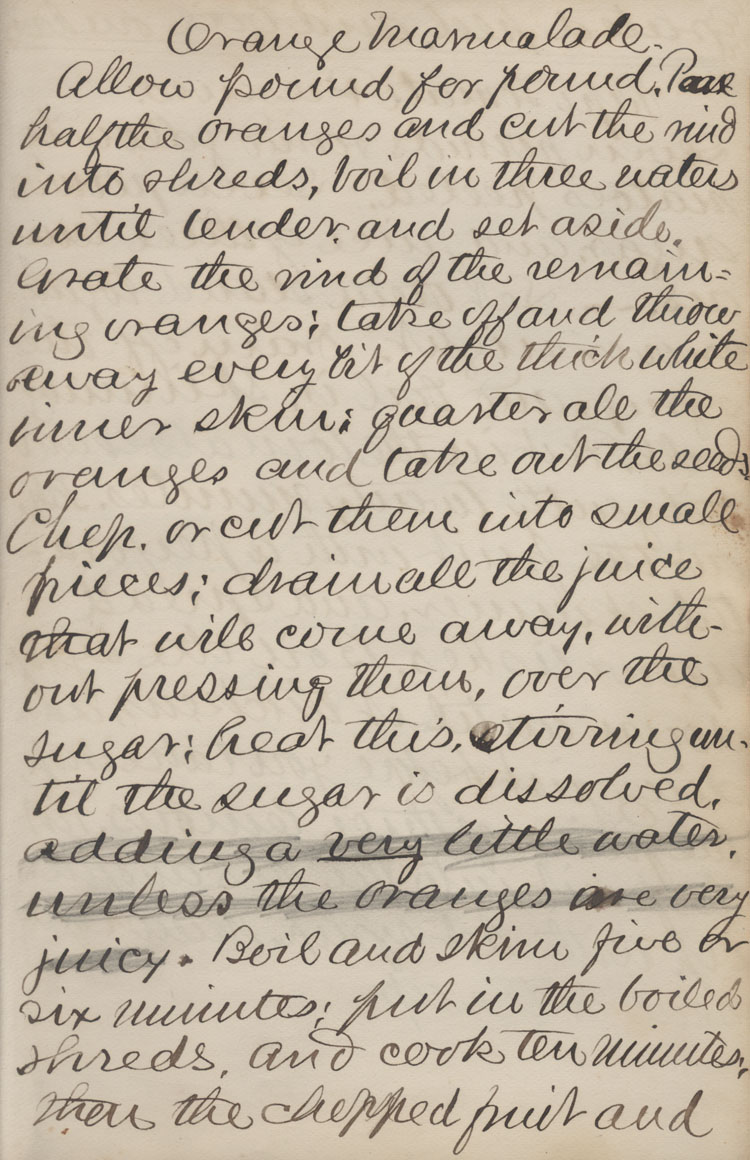 Orange Marmalade.
Allow pound for pound. Pare
half the oranges and cut the rind
into shreds, boil in three waters
until tender, and set aside.
Grate the rind of the remain-
ing oranges; take off and throw
away every bit of the thick white
inner skin; quarter all the
oranges and take out the seeds.
Chop, or cut them into small
pieces; drain all the juice
that will come away, with-
out pressing them, over the
sugar; heat this, stirring un-
til the sugar is dissolved,
adding a very little water,
unless the oranges are very
juicy. Boil and skim five or
six minutes; put in the boiled
shreds, and cook ten minutes;
then the chopped fruit and